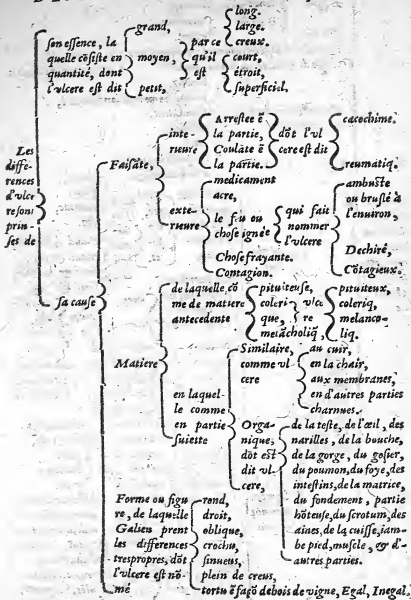 son essence, la
quelle cõsiste en
quantité, dont
l'vlcere est dit
grand,
moyen,
petit,
par ce
qu'il
est
long.
large.
creux.
court.
étroit,
superficiel.
Les
diffe-
rences
d'vlce
re sont
prin-
ses de
sa cause
Faisãte,
inte-
rieure
Arrestee ẽ
la partie,
Coulãte ẽ
la partie.
dõt l'vl
cere est dit
cacochime.
reumatiq.
exte-
rieure
medicament
acre,
le feu ou
chose ignée
Chose frayante.
Contagion.
qui fait
nommer
l'vlcere
ambuste
ou bruslé à
l'enuiron,
Dechiré,
Cõtagieux.
Matiere
de laquelle, cõ
me de matiere
antecedente
pituiteuse,
coleri-
que,
melãcholiq,
vlce
re
pituiteux,
coleriq,
melanco-
liq.
en laquel-
le comme
en partie
suiette
Similaire,
comme vl
cere
au cuir,
en la chair,
aux membranes,
en d'autres parties
charnues.
Orga-
nique,
dõt est
dit vl-
cere,
de la teste, de l'œil, des
narilles, de la bouche,
de la gorge, du gosier,
du poumon, du foye, des
intestins, de la matrice,
du fondement, partie
hõteuse, du scrotum, des
aines, de la cuisse, iam-
be pied, muscle, & d'-
autres parties.
Forme ou figu
re, de laquelle
Galien prent
les differences
trespropres, dõt
l'vlcere est nõ-
mé
rond,
droit,
oblique,
crochu,
sinueus,
plein de creus,
tortu ẽ façõ de bois de vigne, Egal, Inegal.